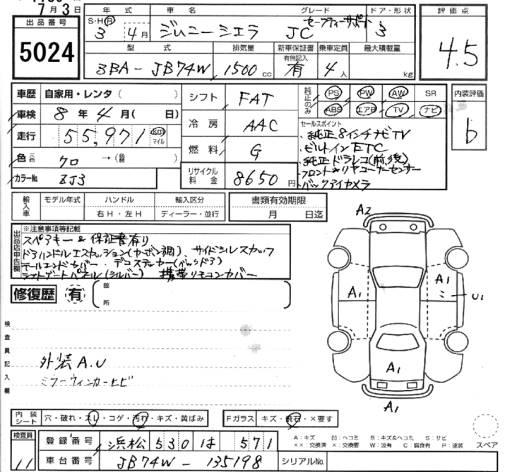 7月3日
出品番号 5024
年式 S・H 3年4月
車名 ジムニーシエラ
グレード JC セーフティーサポート
ドア・形状 3
評価点 4.5
型式 3BA-JB74W
排気量 1500cc
新車保証書 有無記載 有
乗車定員 4人
最大積載量 kg
車歴 自家用・レンタ( )
車検 8年4月( 日)
走行 55,971 km マイル
色 クロ
カラーNo. ZJ3
シフト FAT
冷房 AAC
燃料 G
リサイクル料金 8650円
PS PW AW SR
ABS エアB TV ナビ
内装評価 b
セールスポイント
・純正8インチナビTV
・ビルトインETC
・純正ドラレコ(前,後)
・フロント&リヤコーナーセンサー
・バックアイカメラ
輸入車 モデル年式 ハンドル 右H・左H 輸入区分 ディーラー・並行
書類有効期限 月 日迄
※注意事項等記載
スペアキー&保証書有り
ドアハンドルエスカッション(カーボン調) サイドシルスカッフ
デコステッカー(バックドア)
携帯リモコンカバー
修復歴 有 箇所
A2
A1 A1 U1
A1
A1
検査員記入欄
外装A.U
ミラーウィンカーヒビ
内装シート 穴・破れ・スレ・コゲ・汚れ・キズ・黄ばみ
Fガラス キズ・飛石・×要す
検査員 11
登録番号 浜松 530 は 571
車台番号 JB74W-135198
シリアルNo.
A:キズ U:ヘコミ B:キズ&ヘコミ S:サビ
スペア